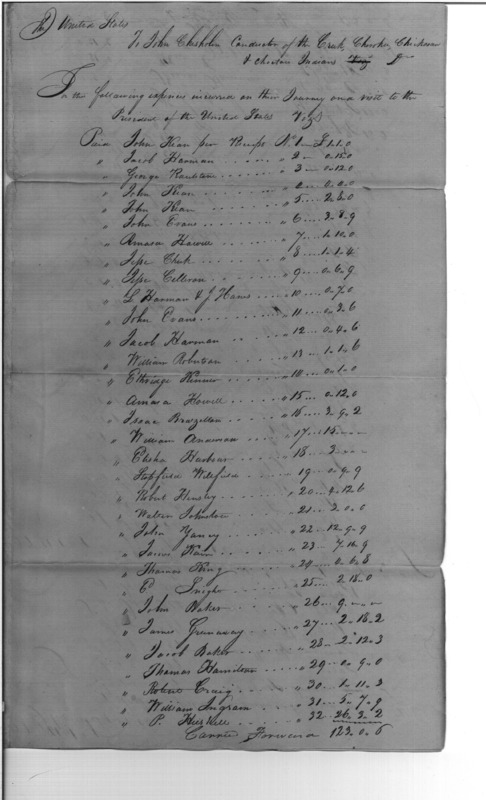 The United States
To John Chisholm Conductor of the Creek, Cherokee, Chickesaw
& choctaw Indians Dr
For the following expences incurred on their Journey on a visit to the
President of the United States Vizt
Paid John Kean per Receipt No. 1 — £1.1.0
" Jacob Harman " 2 — 0.15.0
" George " 3 — 0.12.0
" John Kean " 4 —
" John Kean " 5 ... 2.8.0
" John Evans " 6 ... 3.8.9
" Amasa Howell " 7 ... 1.10.0
" Jesse Cheek " 8 ... 1.1.4
" Jesse " 9 ... 0.6.9
" L Harman & J Haws " 10 ... 0.7.0
" John Evans " 11 ... 0.3.6
" Jacob Harman " 12 ... 0.4.6
" William Robertson " 13 — 1.1.6
" Ethridge " 14 ... 0.1.0
" Amasa Howell " 15 ... 0.12.0
" Isaac " 16 ... 3.9.2
" William Anderson " 17 ... 15 — —
" Elisha " 18 ... 3 — —
" 19 ... 0.9.9
" Robert Hensley " 20 ... 4.12.6
" Walter Johnston " 21 ... 2.0.0
" John Yancy " 22 ... 12.9.9
" James " 23 ...
" Thomas King " 24 ... 0.6.8
" C " 25 ... 2.18.0
" John Baker " 26 ... 9 — —
" James Greenaway " 27 ... 2.18.2
" Jacob Baker " 28 ... 2.12.3
" Thomas Hamilton " 29 ... 0.9.0
" Robert Craig " 30 ... 1.11.3
" William Ingram " 31 ... 5.7.9
" P. " 32 ... 26.3.2
Carried Forward 123.0.6